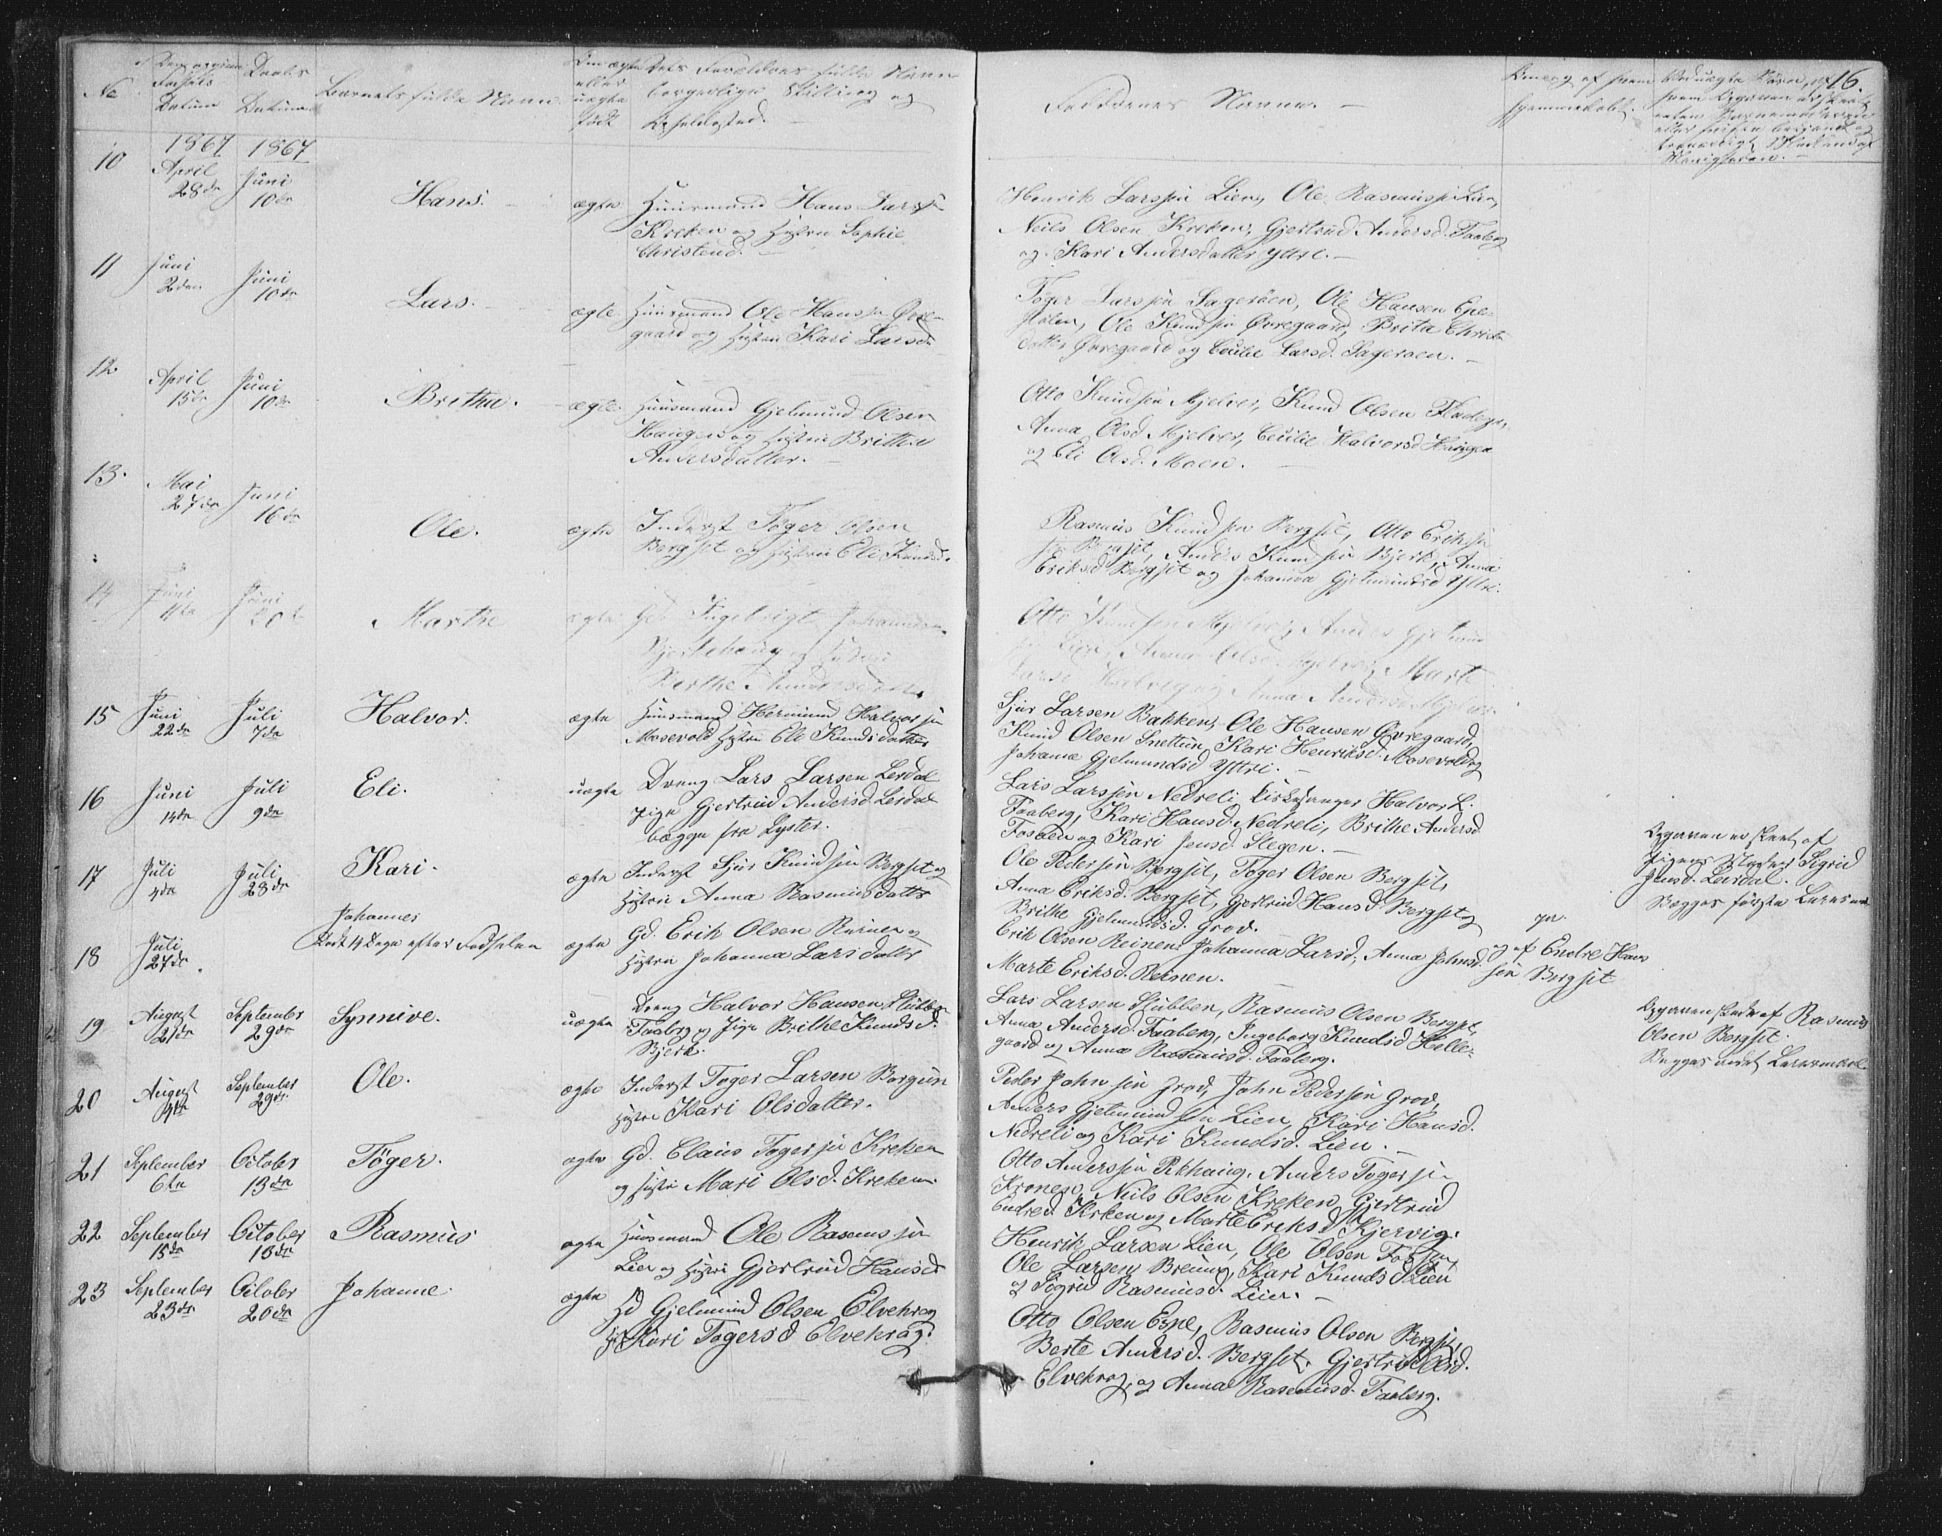 16.
No
Datum
Daabs
Datum
Barnets fulde Navn.
eller
uægte
født
Forældres fulde Navn
borgerlige Stilling og
Opholdssted.
Faddernes Navne. –
1867 1867
10
April
28de
Juni
10de
Hans.
ægte
Huusmand Hans Larss.
Kreken og Hustru Sophie
Christend. –
Henrik Larssen Lien, Ole Rasmussen Lien,
Neils Olsen Kreken, Gjertrud Andersd. Faaberg
og Kari Andersdatter Yttri. –
11
Juni
2den
Juni
10de
Lars.
ægte
Huusmand Ole Hanssen Øvre-
gaard og Hustru Kari Larsd.
Tøger Larssen Sagerøen, Ole Hansen Epe-
stølen, Ole Knudsen Øvregaard, Brita Christen
datter Øvregaard og Cecilie Larsd. Sagerøen. –
12
April
15de
Juni
10de
Brithe.
ægte.
Huusmand Gjelmund Olsen
Haugen og Hustru Brithe
Andersdatter. –
Otto Knudsen Mjelver, Knud Olsen
Anna Olsd. Mjelver, Cecilie Halvorsd. Haugen
og Eli Olsd. Moen. –
13.
Mai
27de
Juni
16de
Ole.
ægte
Inderst Tøger Olsen
Bergset og Hustru Eli Knudsd.
Rasmus Knudsen Bergset, Otto Eriksen
Bergset, Anders Knudsen Bjerk, Anna
Eriksd. Bergset og Johanna Gjelmundsd. Yttri.
14
Juni
Juni
30te
Marthe
ægte
Gd. Ingebrigt Johannesen
og Hustru
Berthe
Otto Knudsen Mjelver, Anders Gjelmund
Lien, Anna Olsd. Mjelver, Marte
Larsd. og Anna
15
Juni
22de
Juli
7de
Halvor.
ægte
Huusmand Hermund Halvorsen
Mosevold Hustru Eli Knudsdatter
Sjur Larsen Bakken, Ole Hansen Øvregaard,
Knud Olsen Snetun, Kari Henriksd. Mosevold og
Johanne Gjelmundsd. Yttri. –
16
Juni
14de
Juli
9de
Eli.
uægte
Dreng Lars Larsen Lerdal
Pige Gjertrud Andersd. Lerdal
begge fra Lyster.
Lars Larssen Nedreli, Kirkesanger Halvor L.
Faaberg, Kari Hansd. Nedreli, Brithe Andersd.
Fosøen og Kari Jensd. Stegen. –
Opgaven er skeet af
Pigens Moder Sigrid
Jensd. Leirdal.
Begges første Leiermaal
17
Juli
4de
Juli
28de
Kari.
ægte
Inderst Sjur Knudsen Bergset og
Hustru Anna Rasmusdatter
Ole Pedersen Bergset, Tøger Olsen Bergset,
Anna Eriksd. Bergset, Gjertrud Hansd. Bergset og
Brithe Gjelmundsd. Grov.
18
Juli
27de
Johannes
Død 14 Dage efter Fødselen
ægte
Gd. Erik Olsen Reinen og
Hustru Johanna Larsdatter
Erik Olsen Reinen, Johanna Larsd., Anna Johnsd. og
Marte Eriksd. Reinen.
ja.
af Endre Hans
sen Bergset
19
August
21de
September
29de
Synnive.
uægte
Dreng Halvor Hansen Stubben
Faaberg og Pige Brithe Knudsd.
Bjerk.
Lars Larsen Stubben, Rasmus Olsen Bergset,
Anna Andersd. Faaberg, Ingeborg Knudsd. Helle-
gaard og Anna Rasmusd. Faaberg.
Opgaven skede af Rasmus
Olsen Bergset.
Begges andet Leiermaal
20
August
4de
September
29de
Ole.
ægte
Inderst Tøger Larsen Borgun
Hustru Kari Olsdatter.
Peder Johnsen Grov, John Pedersen Grov,
Anders Gjelmundsen Lien, Kari Hansd.
Nedreli og Kari Knudsd. Lien.
21
September
6te
October
13de
Tøger.
ægte
Gd. Claus Tøgersen Kreken
og Hustru Mari Olsd. Kreken.
Otto Anderssen Rebhaug, Anders Tøgersen
Kronen, Neils Olsen Kreken, Gjertrud
Endred. Kreken og Marte Eriksd. Kjervig.
22
September
15de
October
13de
Rasmus
ægte
Huusmand Ole Rasmussen
Lien og Hustru Gjertrud Hansd.
Henrik Larsen Lien, Ole Olsen
Ole Larsen Breum, Kari Knudsd. Lien
og Sigrid Rasmusd. Lien. –
23
September
23de
October
20de
Johanne
ægte
Gd. Gjelmund Olsen Elvekrog
H. Kari Tøgersd. Elvekrog.
Otto Olsen Espe, Rasmus Olsen Bergset,
Berte Andersd. Bergset, Gjertrud Olsd.
Elvekrog, og Anna Rasmusd. Faaberg.